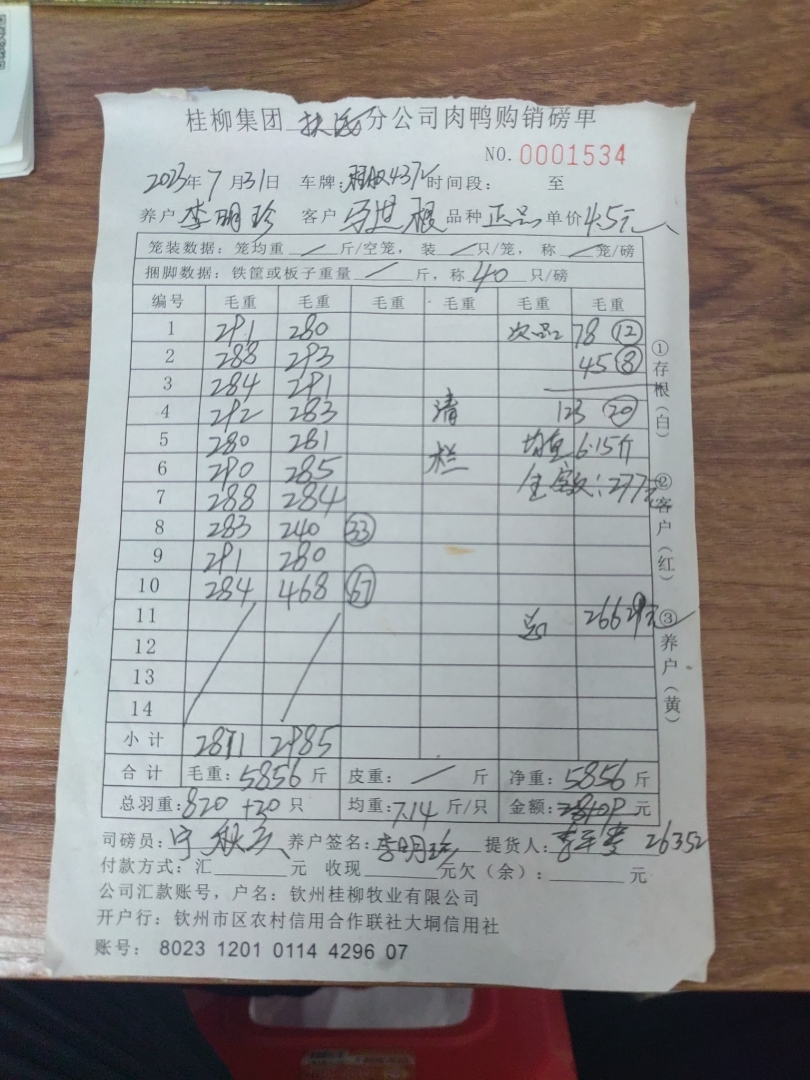 桂柳集团 扶绥 分公司肉鸭购销磅单
NO. 0001534
2023年 7 月31日 车牌: 时间段: 至
养户 李明珍 客户 马世根 品种 正品 单价 4.5元
笼装数据: 笼均重 / 斤/空笼, 装 / 只/笼, 称 / 笼/磅
捆脚数据: 铁筐或板子重量 / 斤, 称 40 只/磅
编号 毛重 毛重 毛重 毛重 毛重 毛重
1 291 280 次品: 78 ⑫
2 288 293 45 ⑧
3 284 291
4 292 283 清 123 ⑳
5 280 281 均重 6.15斤
6 290 285 栏 金额: 277元
7 288 284
8 283 240 ㉝
9 291 280
10 284 468 (67)
11 总 26629元
12
13
14
小计 2871 2985
合计 毛重: 5856 斤 皮重: / 斤 净重: 5856 斤
总羽重: 820 +20 只 均重: 7.14 斤/只 金额: 元
司磅员: 养户签名: 李明珍 提货人: 26352
付款方式: 汇 元 收现 元欠(余): 元
公司汇款账号, 户名: 钦州桂柳牧业有限公司
开户行: 钦州市区农村信用合作联社大垌信用社
账号: 8023 1201 0114 4296 07
①存根(白) ②客户(红) ③养户(黄)